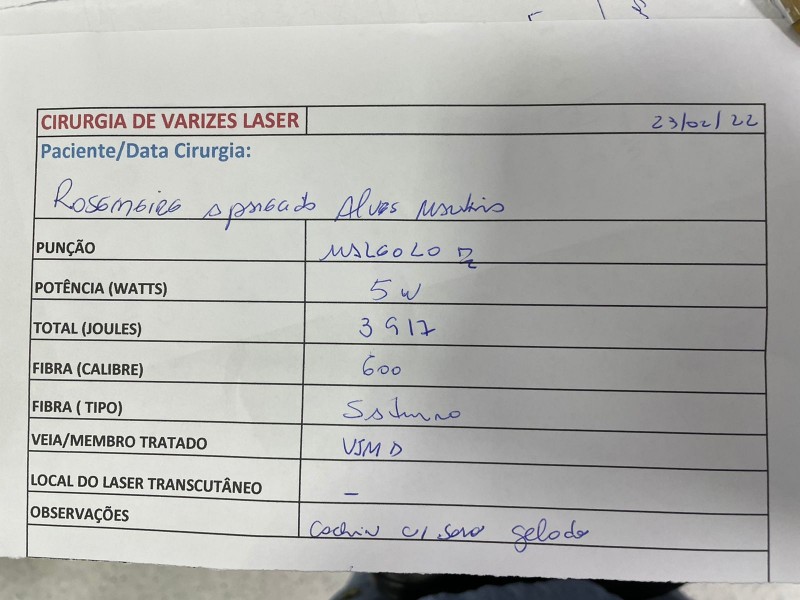 CIRURGIA DE VARIZES LASER 23/02/22
Paciente/Data Cirurgia:
Rosemeire Aparecido Alves
PUNÇÃO MALEOLO D
POTÊNCIA (WATTS) 5 W
TOTAL (JOULES) 3917
FIBRA (CALIBRE) 600
FIBRA ( TIPO) Saturno
VEIA/MEMBRO TRATADO VSM D
LOCAL DO LASER TRANSCUTÂNEO –
OBSERVAÇÕES c/ soro gelado